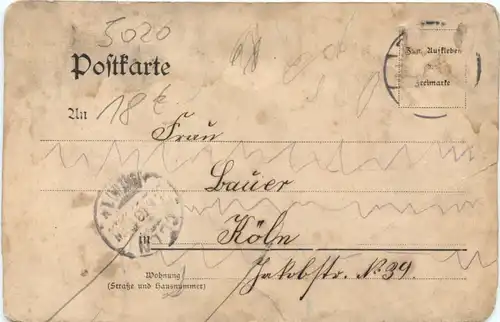 5020
Postkarte
Zum Aufkleben
der
Freimarke
An 18 €
Frau
Bauer
in Köln
Wohnung
(Straße und Hausnummer)
Jakobstr. No 39.